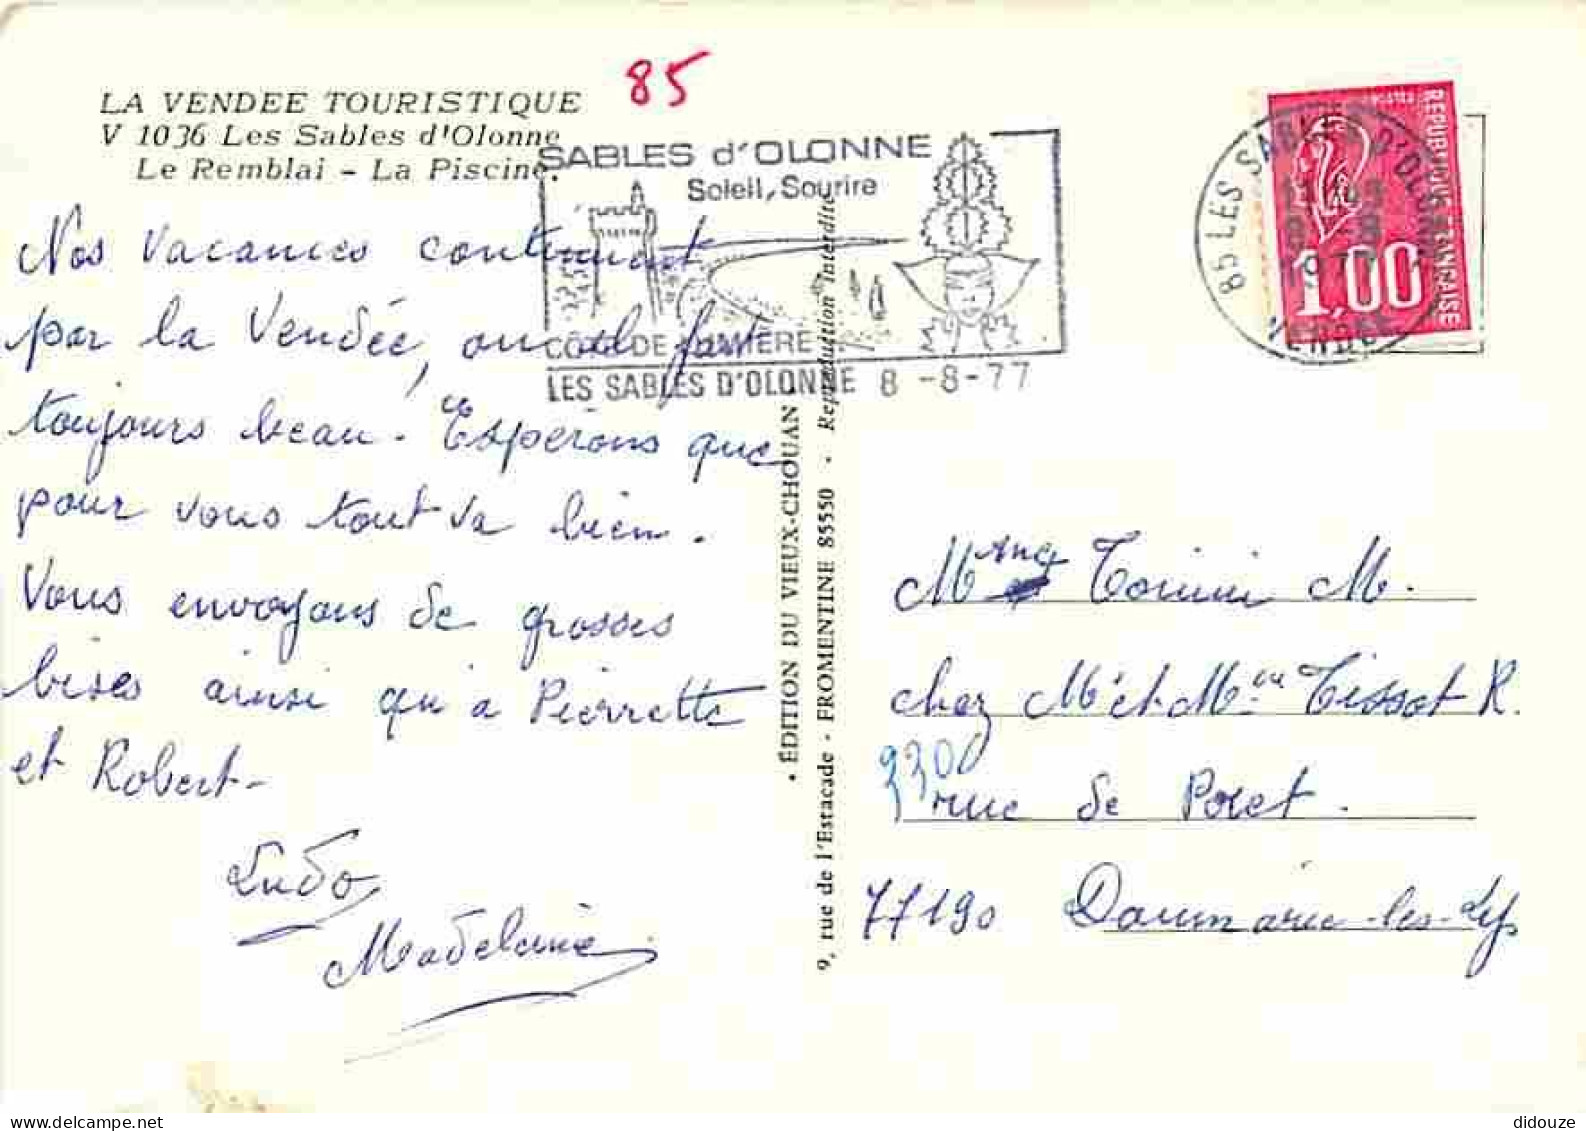 85
LA VENDEE TOURISTIQUE
V 1036 Les Sables d'Olonne
Le Remblai - La Piscine.
SABLES d'OLONNE
Soleil, Sourire
CÔTE DE LUMIÈRE
LES SABLES D'OLONNE 8 -8-77
85 LES SABLES D'OLONNE
VENDEE
1977
REPUBLIQUE FRANÇAISE
1,00
Nos vacances continuent
par la Vendée, où il fait
toujours beau. Espérons que
pour vous tout va bien.
Vous envoyons de grosses
bises ainsi qu'à Pierrette
et Robert-
Ludo
Madeleine
• ÉDITION DU VIEUX-CHOUAN •
9, rue de l'Estacade - FROMENTINE 85550 • Reproduction interdite
M Toinini M.
chez Mr et Mme Tissot R.
3300
rue de Poret.
77190 Dammarie-les-Lys
didouze